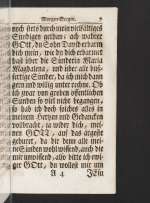 Morgen-Segen. 7
noch stets durch mein vielfältiges
Sündigen gethan: ach mächter
GOtt, du Sohn David erbarm
dich mein, wie du dich erbarmet
hast über die Sünderin Maria
Magdalena, und über alle buß-
fertige Sünder, da ich mich dann
gern und willig unter rechne. Ob
ich zwar von groben öffentlichen
Sünden so viel nicht begangen,
so hab ich doch solches alles in
meinem Hertzen und Gedancken
vollbracht, ja wider dich, mei-
nen GOTT, auf das ärgest
gehöret, da dir dann alle mei-
ne Sünden wohl wissend, auch die
mir unwissend, also bitte ich ewi-
ger GOtt, du wollest mir um
A 4 JEsu